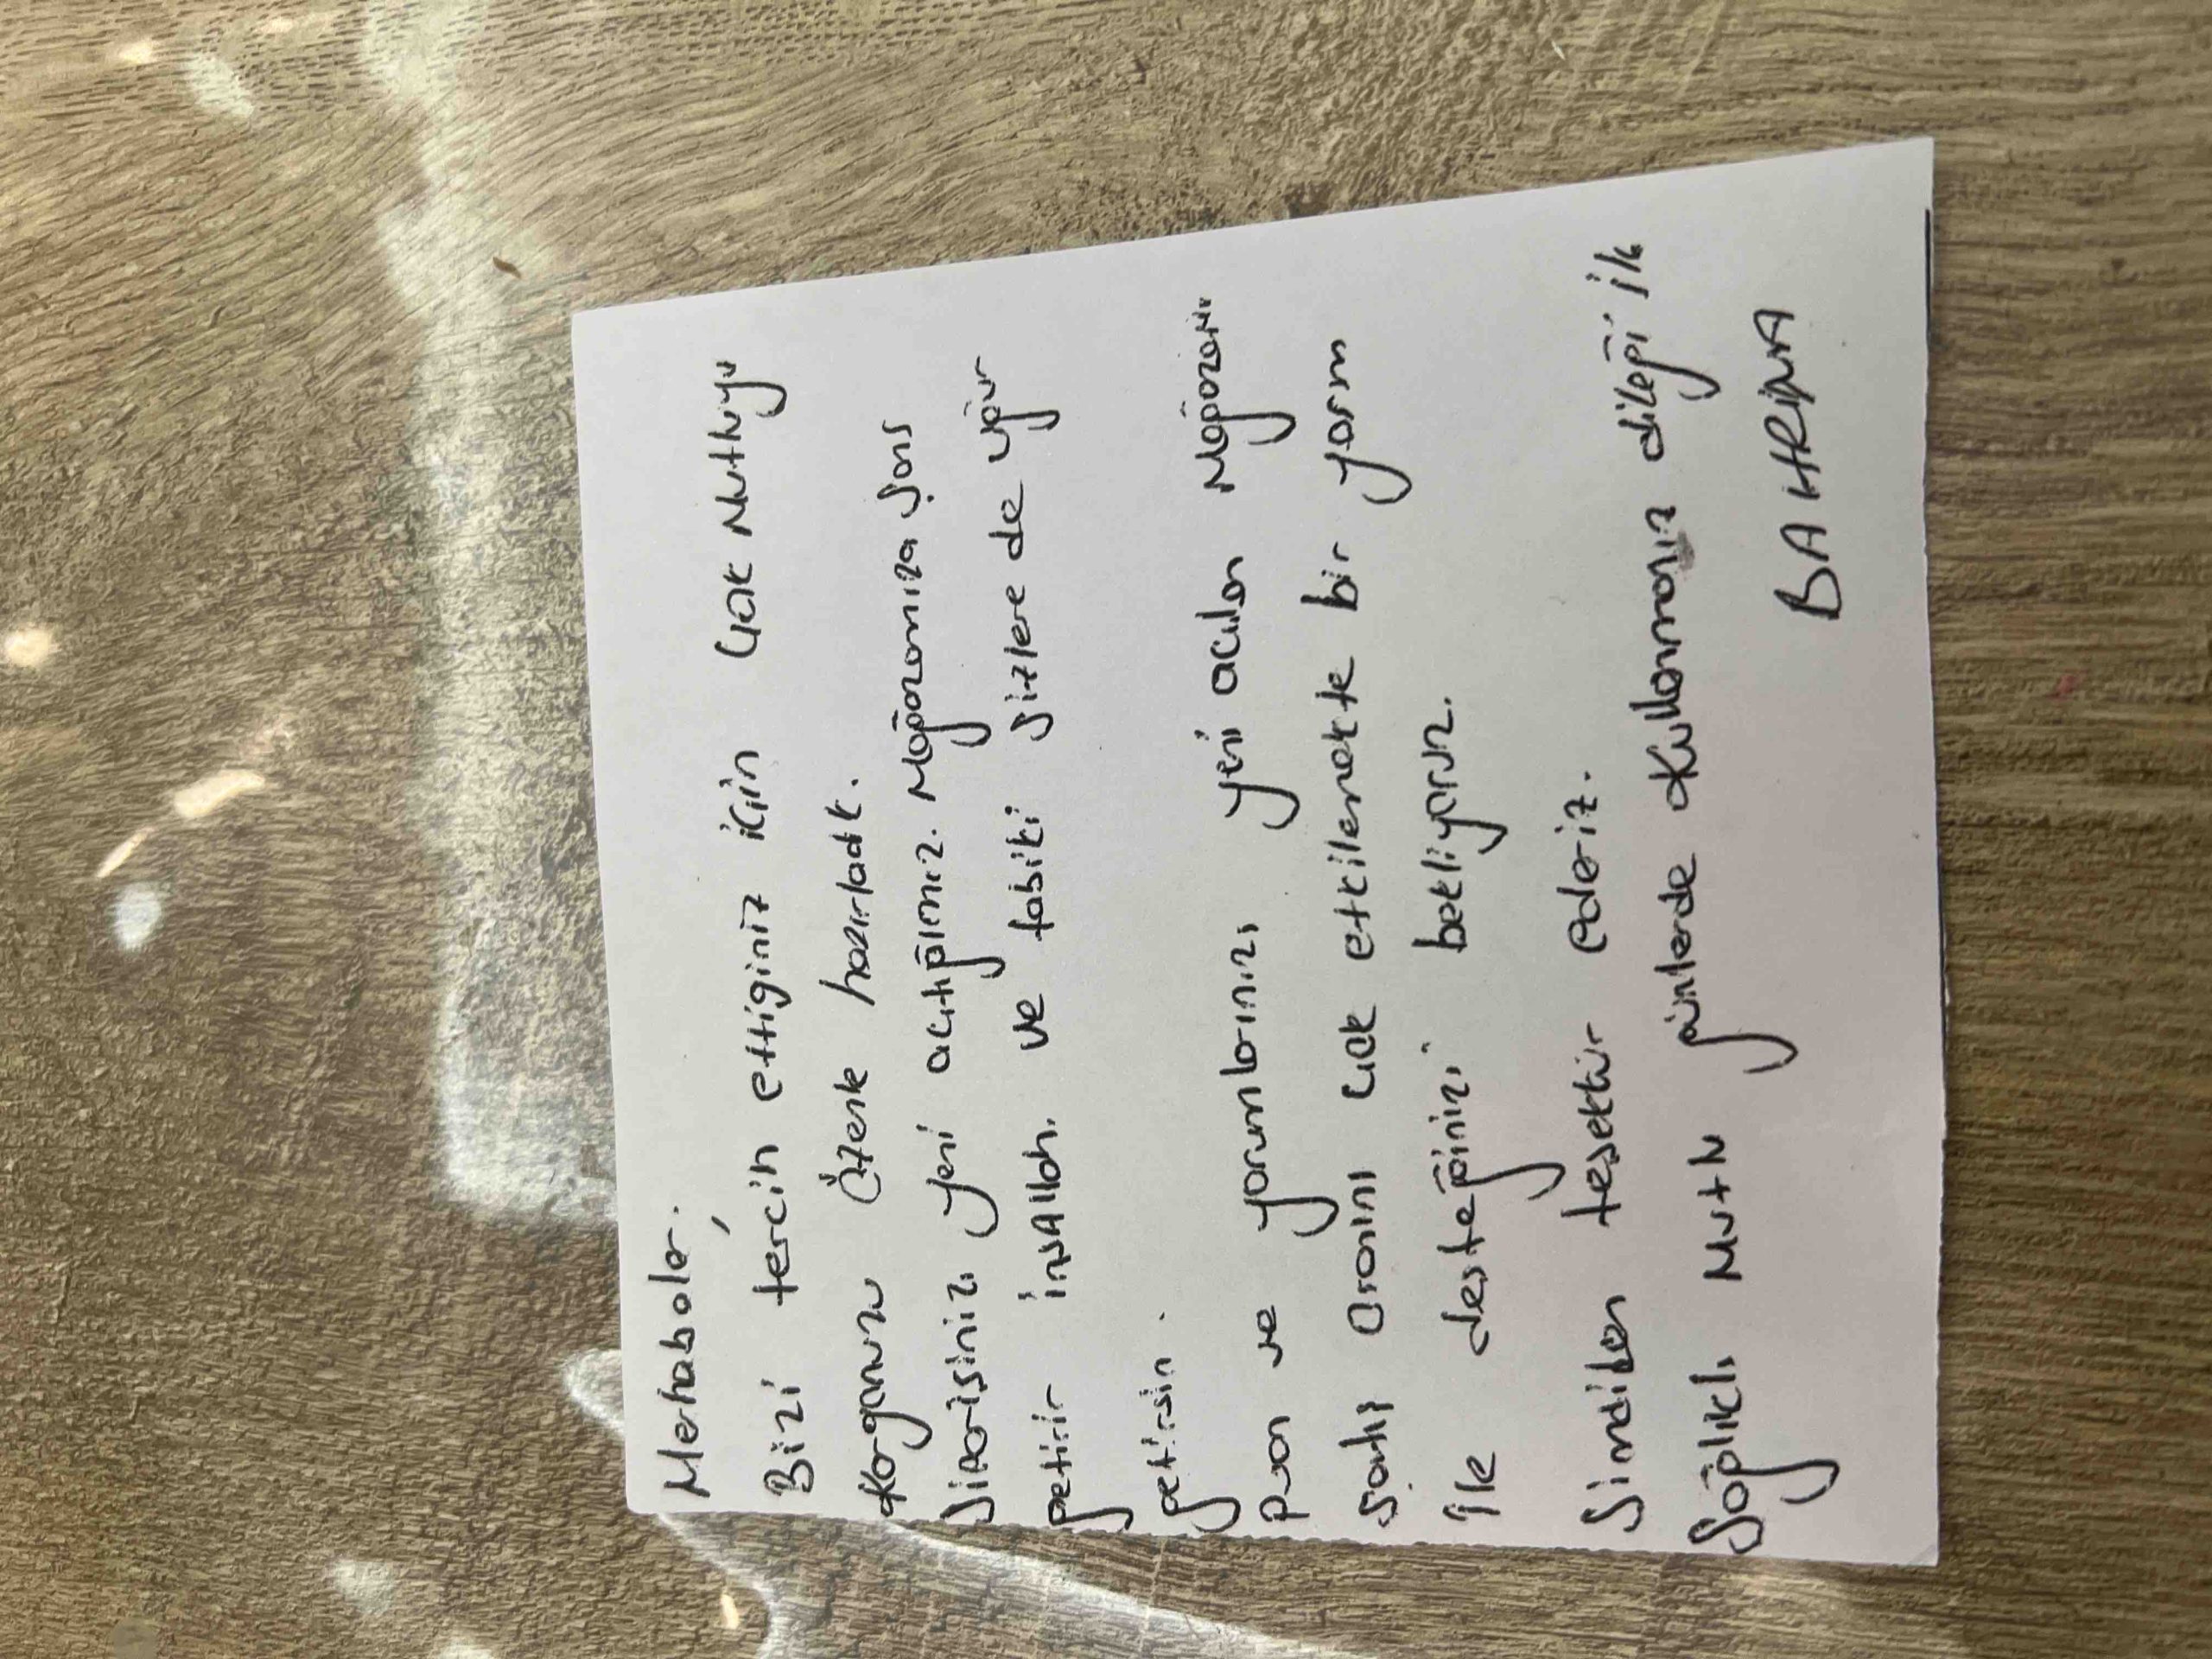 Merhabalar.
Bizi tercih ettiginiz için çok mutluyu
Kargonuzu özenle hazırladık.
Siparişiniz yeni açtığımız mağazamıza şans
getirir inşallah. ve tabiki sizlere de uğur
getirsin.
Puan ve yorumlarınızı yeni açılan mağazanın
satış oranını çok etkilemekte bir yorum
ile desteğinizi bekliyoruz.
Simdiden tesekkür ederiz.
Sağlıklı mutlu günlerde kullanmanız dileği ile
BAHRİNA